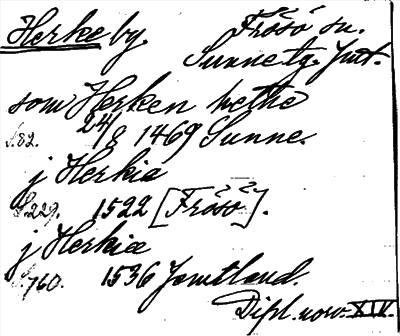 Herke by. Frösö sn.
Sunne tg. Jmt.
som Herken hethe
S. 82. 24/8 1469 Sunne.
j Herkia
S. 229. 1522 [Frösö].
j Herkiæ
S. 760. 1536 Jemtland.
Dipl. norv. XIV.